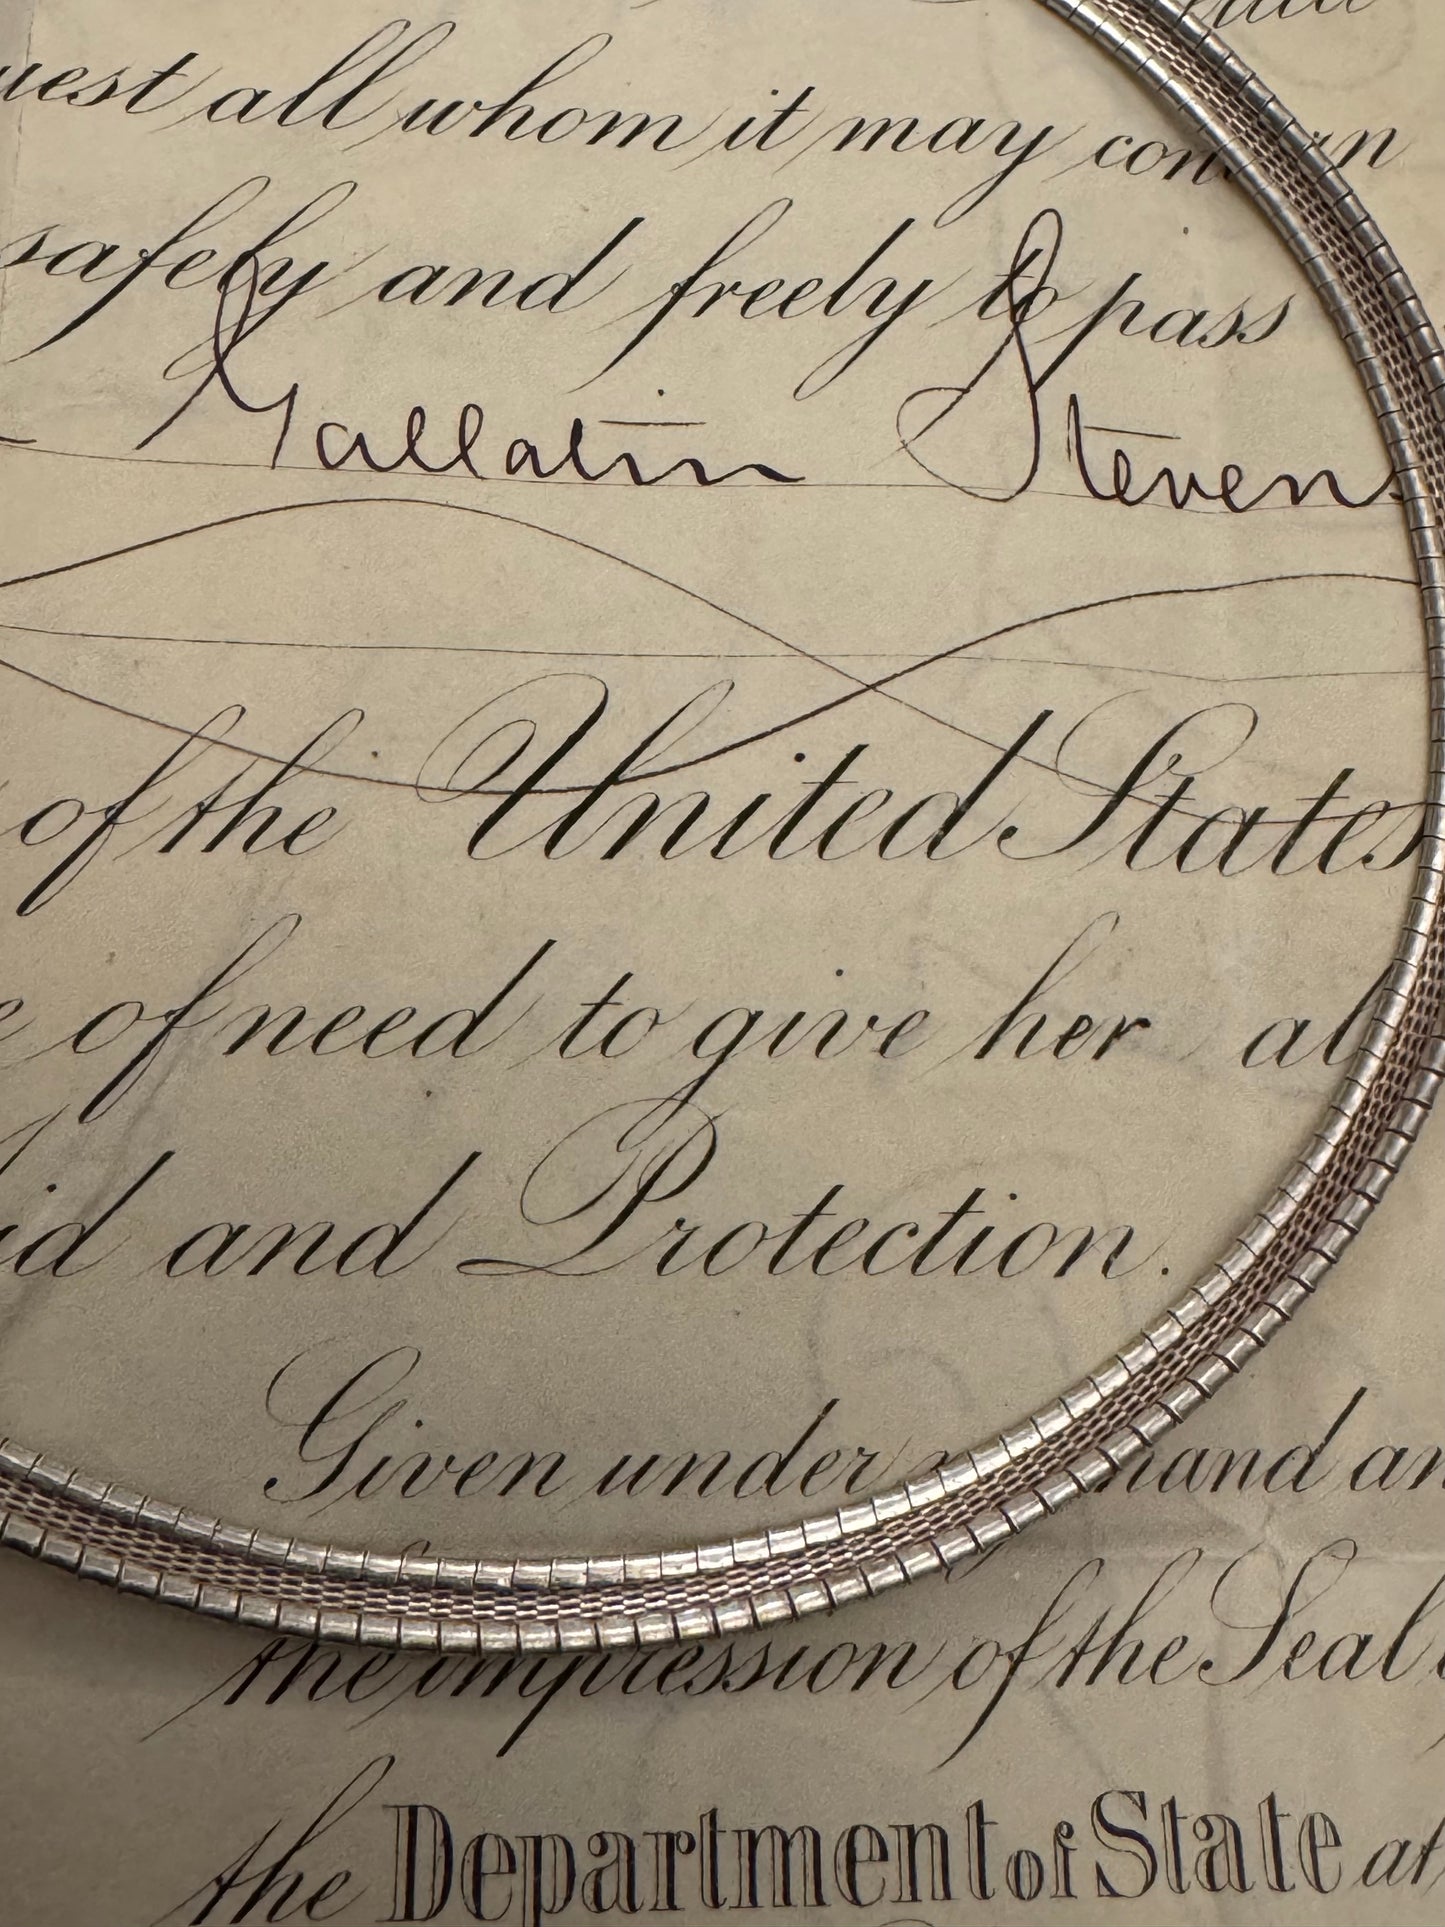 uest all whom it may concern
safely and freely to pass
Gallatin Stevens
of the United States
of need to give her al
id and Protection.
Given under hand an
the impression of the Seal
the Department of State at